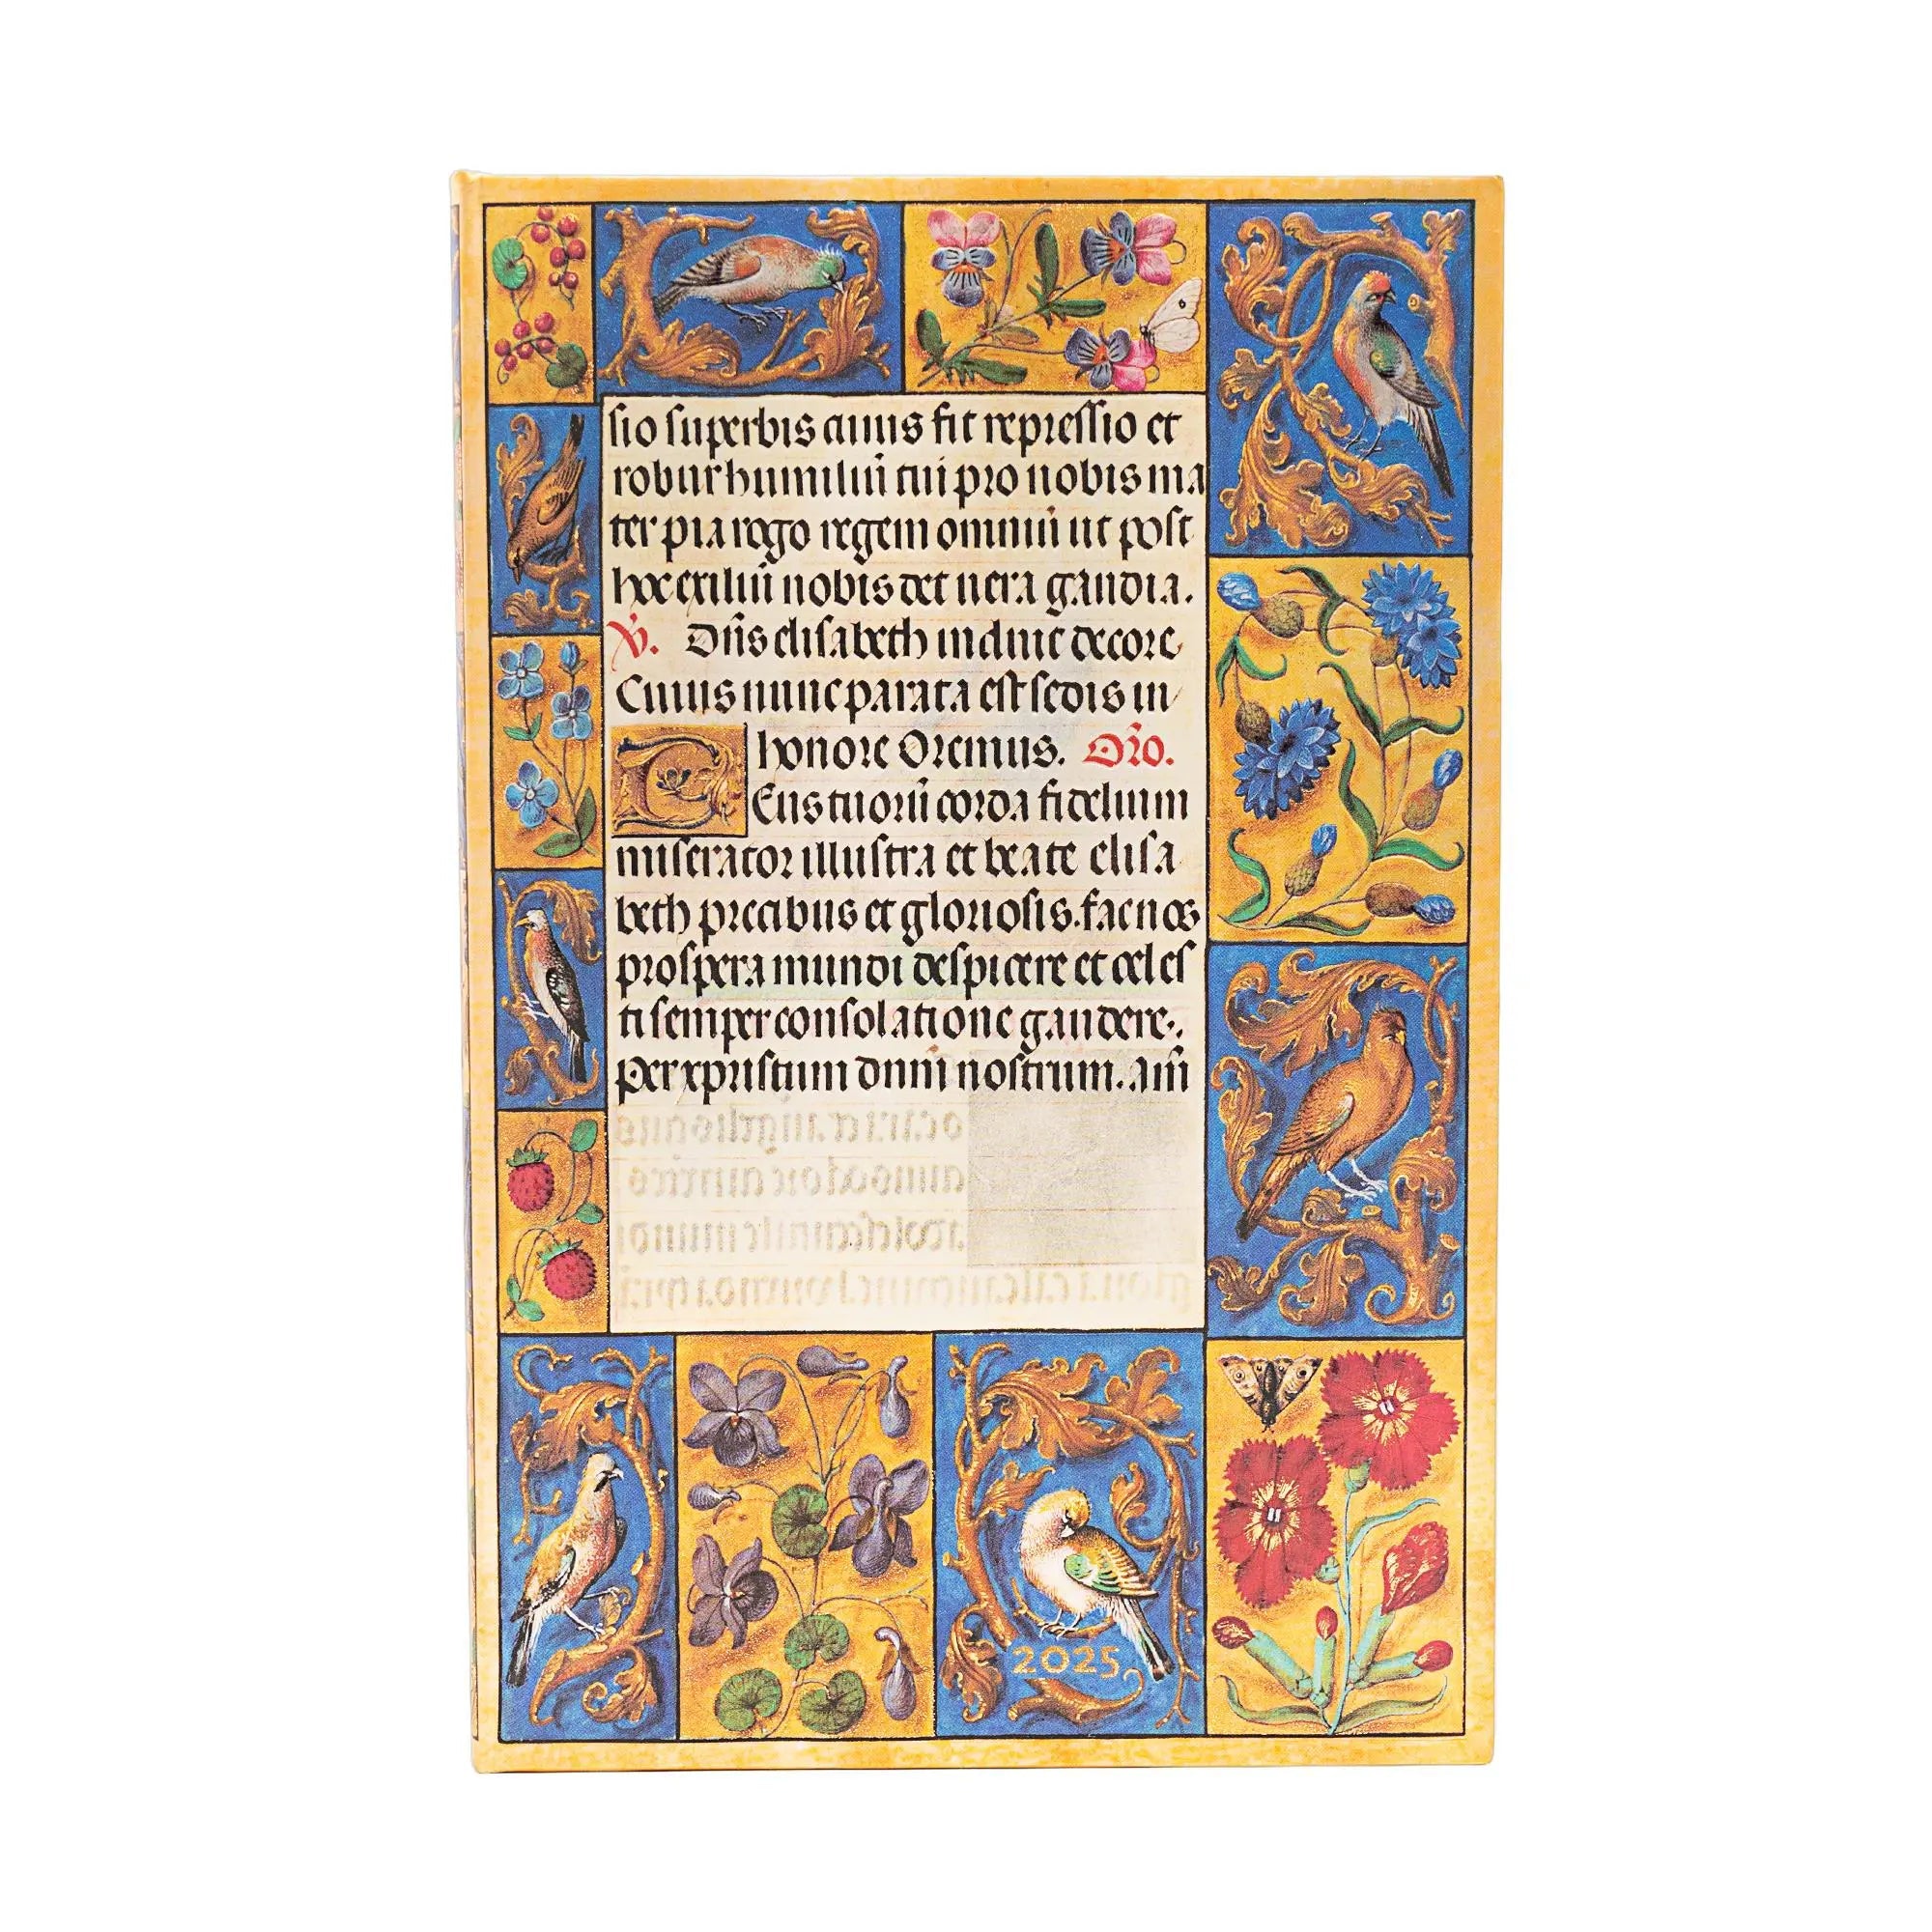 sio superbis cuius fit repressio et
robur humiliū tui pro nobis ma
ter pia rogo regem omniū ut post
hoc exiliū nobis det uera gaudia.
V̄. Dn̄s elisabeth induit decore
Cuius nunc parata est sedis in
honore Oremus. Or̄o.
Deus tuorū corda fidelium
miserator illustra et beate elisa
beth precibus et gloriosis. fac nos
prospera mundi despicere et celes
ti semper consolatione gaudere.
Per xpristum dnm̄ nostrum. am̄
2025